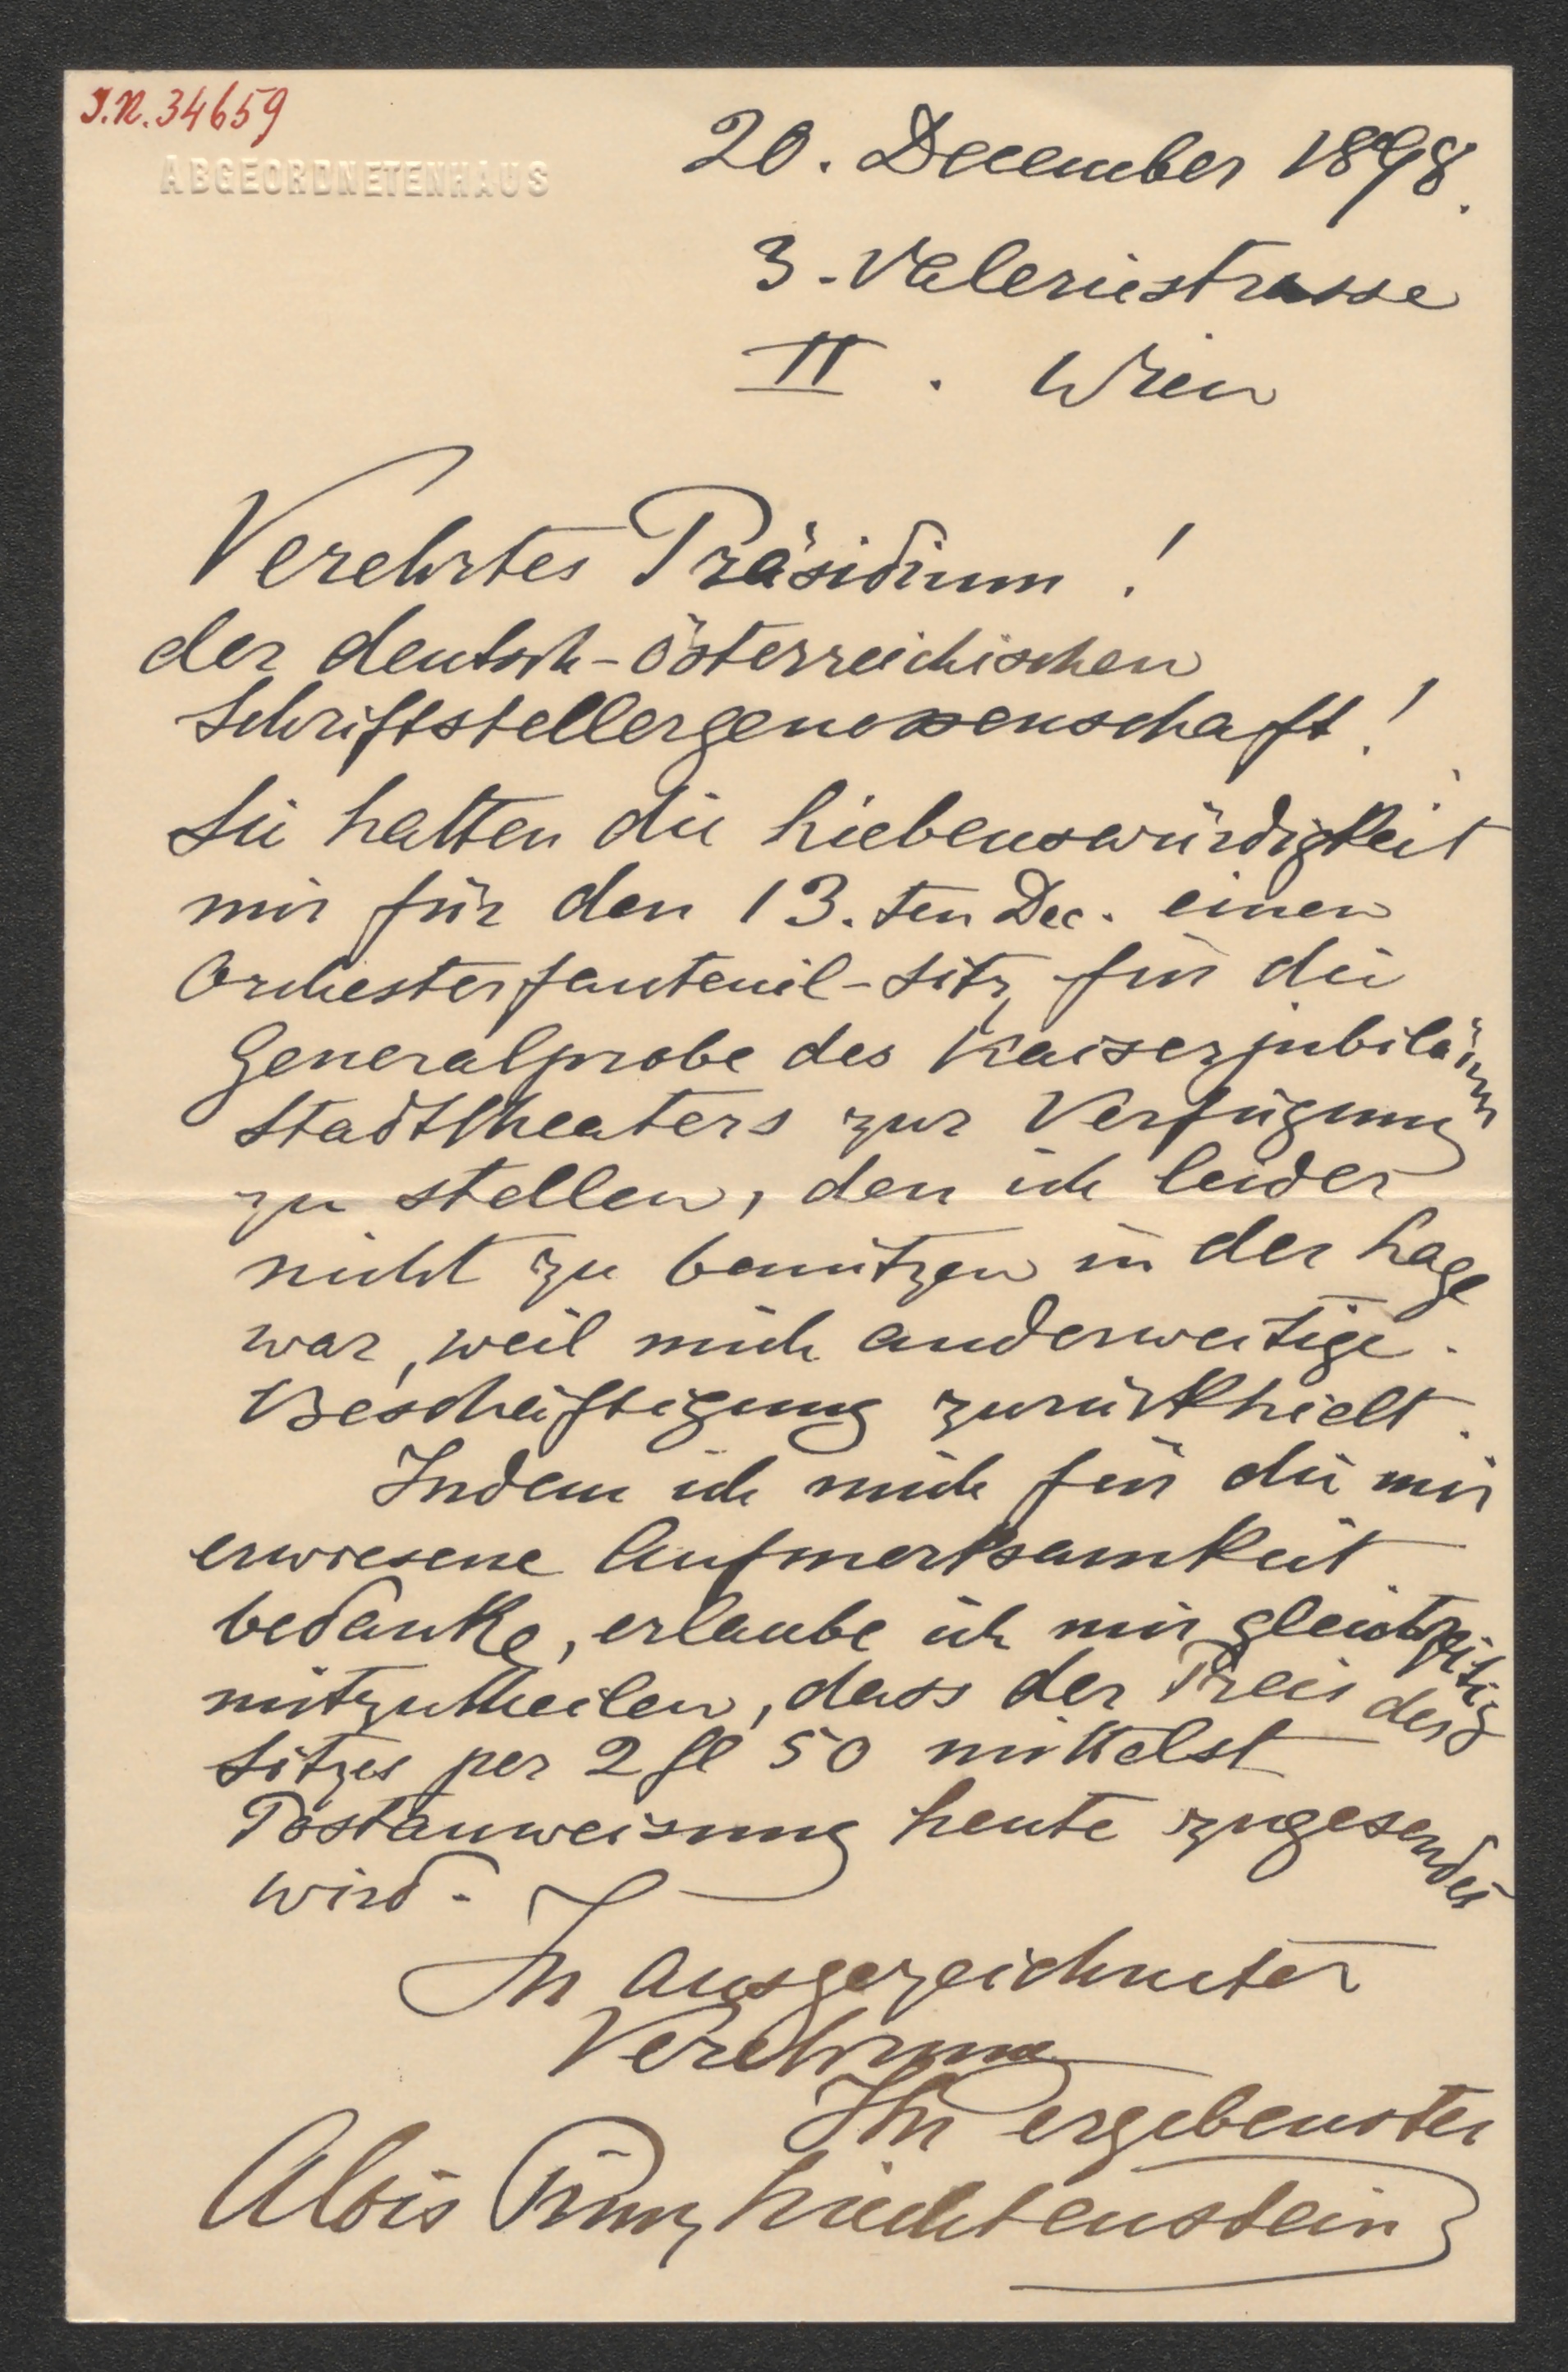 J.N. 34659
ABGEORDNETENHAUS
20. December 1898.
3. Valeriestrasse
II. Wien
Verehrtes Präsidium!
der deutsch-österreichischen
Schriftstellergenossenschaft!
Sie hatten die Liebenswürdigkeit
mir für den 13.ten Dec. einen
Orchesterfauteuil-Sitz für die
Generalprobe des Kaiserjubiläums
Stadttheaters zur Verfügung
zu stellen, den ich leider
nicht zu benützen in der Lage
war, weil mich anderweitige
Beschäftigung zurückhielt.
Indem ich mich für die mir
erwiesene Aufmerksamkeit
bedanke, erlaube ich mir gleichzeitig
mitzutheilen, dass der Preis des
Sitzes per 2 fl 50 mittelst
Postanweisung heute zugesendet
wird.
In ausgezeichneter
Verehrung
Ihr ergebenster
Alois Prinz Liechtenstein